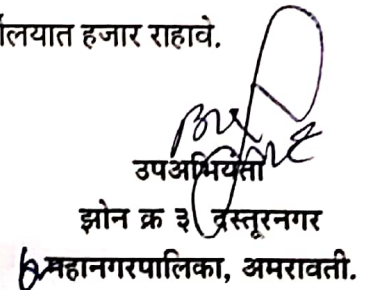 र्यालयात हजार राहावे.
उपअभियंता
झोन क्र ३ दस्तूरनगर
महानगरपालिका, अमरावती.